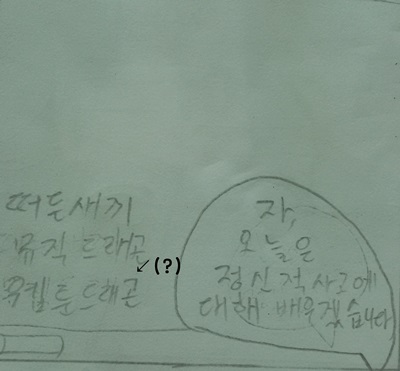 떠든새끼
뮤직 드래곤
드래곤
(?)
자,
오늘은
정신적 사고에
대해 배우겠습니다